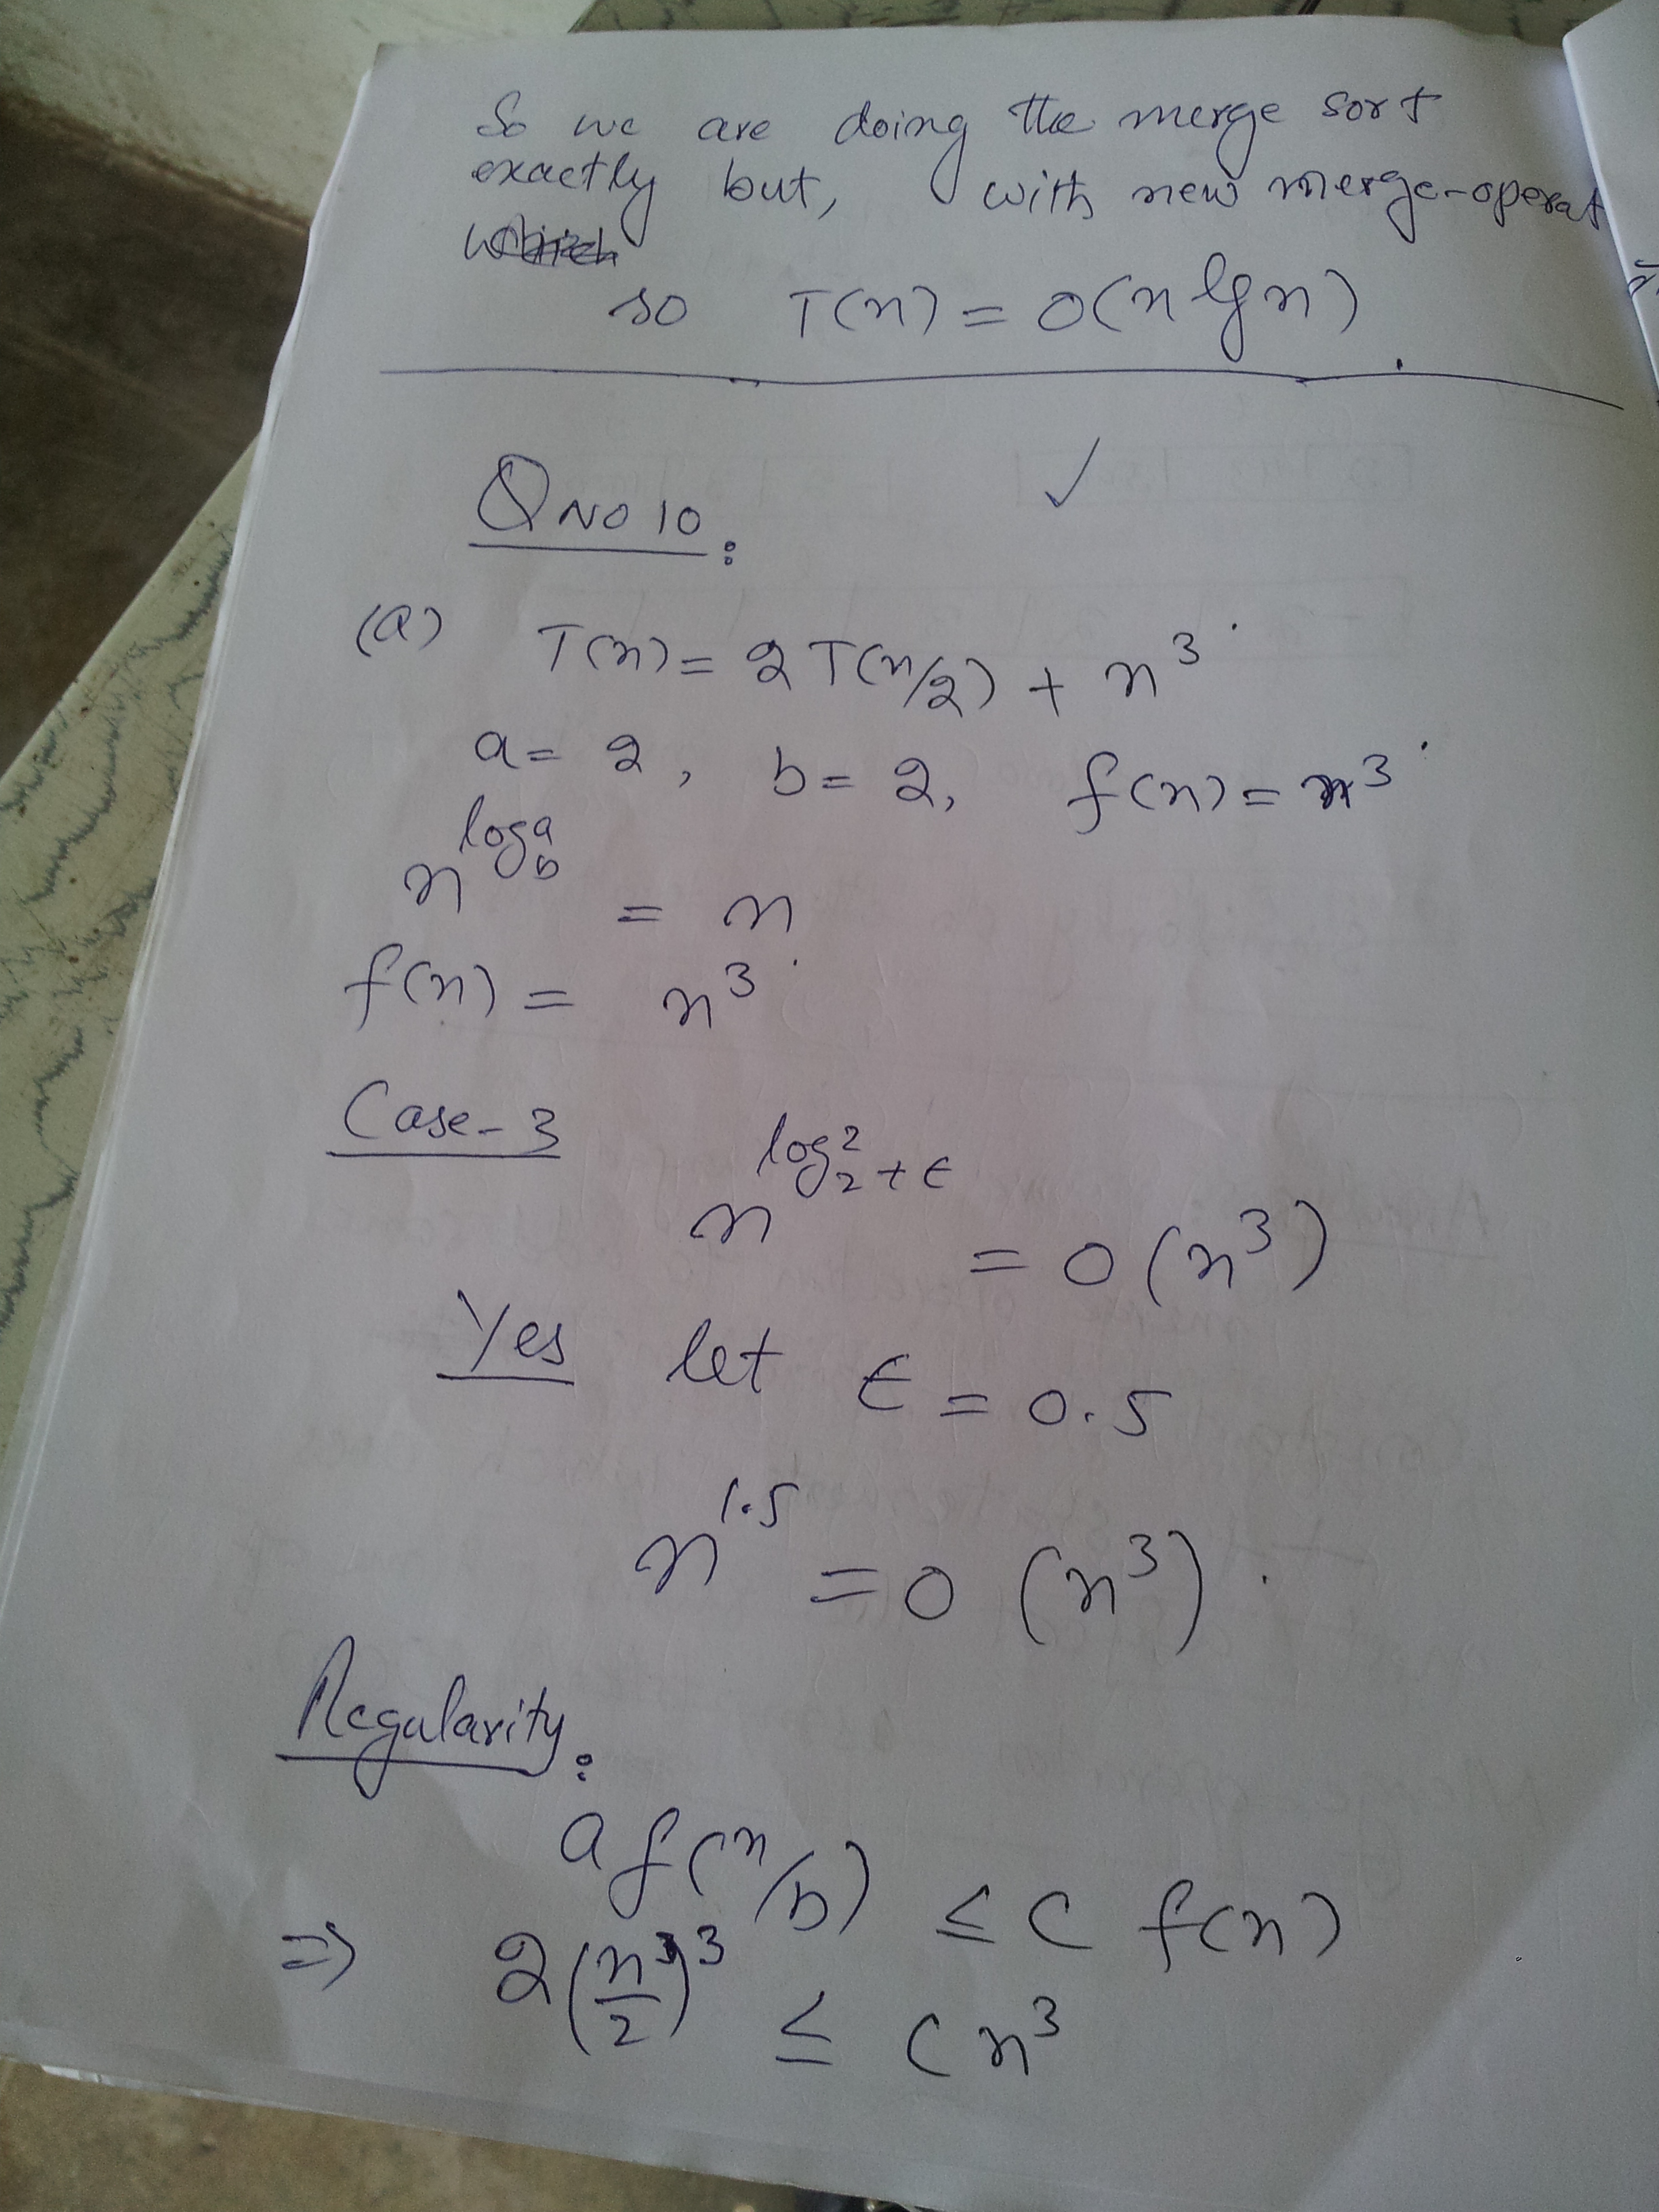 So we are doing the merge sort
exactly but, with new merge-operat
so T(n) = O(n lg n)
Q No 10:
(a) T(n) = 2T(n/2) + n³.
a = 2, b = 2, f(n) = n³.
n^log_b a = n
f(n) = n³.
Case-3
n^log_2 2 + ε = O(n³)
Yes let ε = 0.5
n^1.5 = O(n³).
Regularity:
a f(n/b) ≤ c f(n)
⇒ 2(n/2)³ ≤ c n³